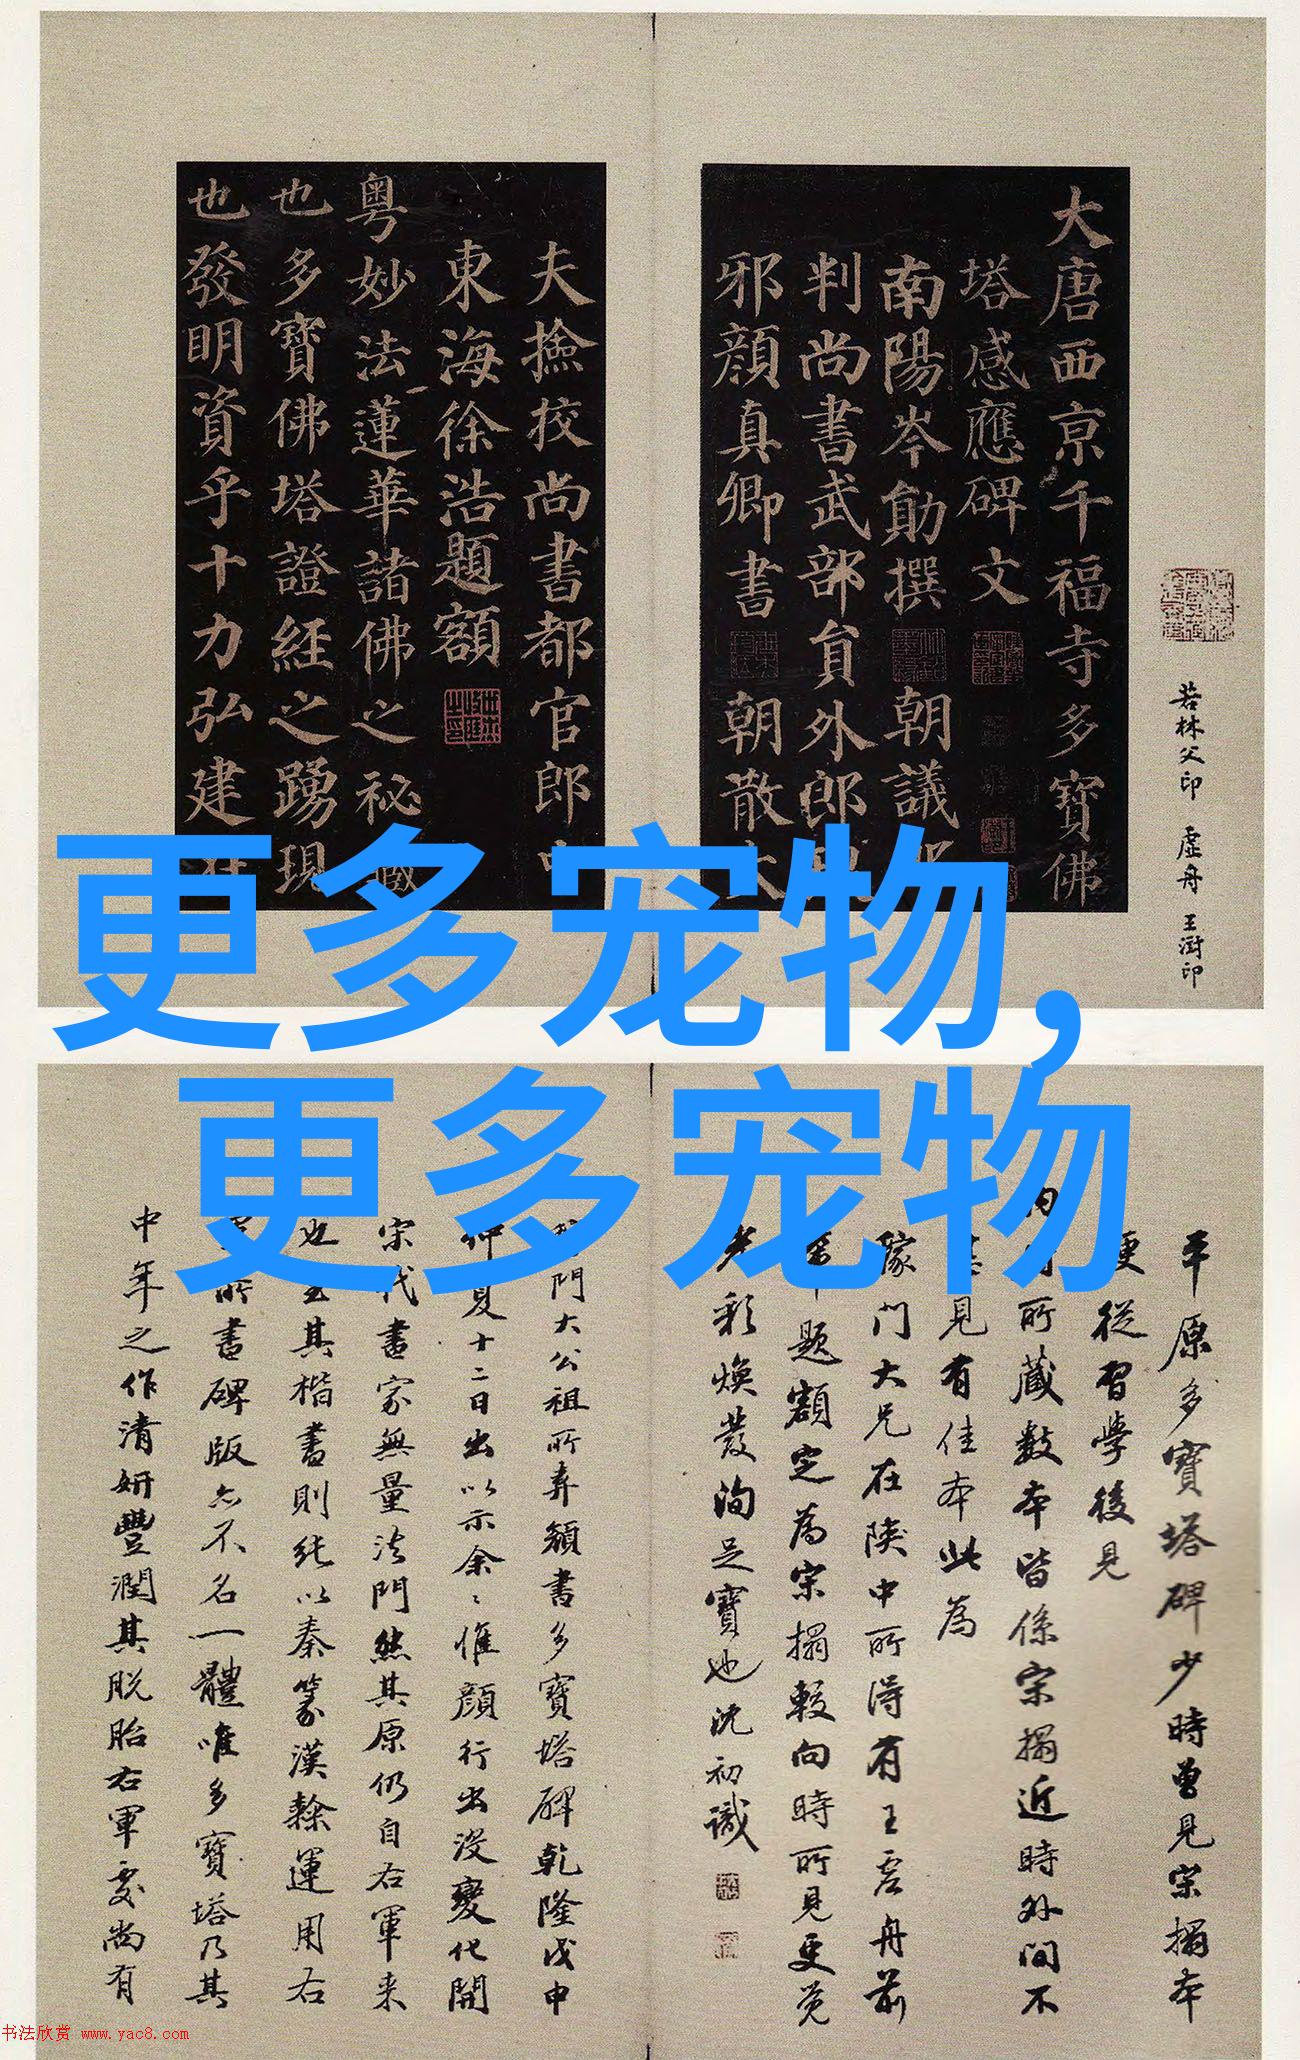 大唐西京千福寺多寶佛
塔感應碑文
南陽岑勛撰 朝議
判尚書武部員外郎
邪顏真卿書 朝散大
夫撿挍尚書都官郎中
東海徐浩題額
粵妙法蓮華諸佛之祕藏
也多寶佛塔證經之踴現
也發明資乎十力弘建
若林父印 虛舟 王澍印
更多宠物,
更多宠物
平原多寶塔碑少時曾見宋搨本
便從習學後見
內府所藏數本皆係宋搨近時外間不
見有佳本此為
稼門大兄在陝中所得有王虛舟前
題額定為宋搨較向時所見更覺
光彩煥發洵足寶也沈初識
門大公祖所弆額書多寶塔碑乾隆戊申
仲夏十二日出以示余余惟顏行出沒變化開
宋代書家無量法門然其原仍自右軍来
也至其楷書則純以秦篆漢隸運用右
所書碑版亦不名一體唯多寶塔乃其
中年之作清妍豐潤其脫胎右軍處尚有
书法欣赏 www.yac8.com